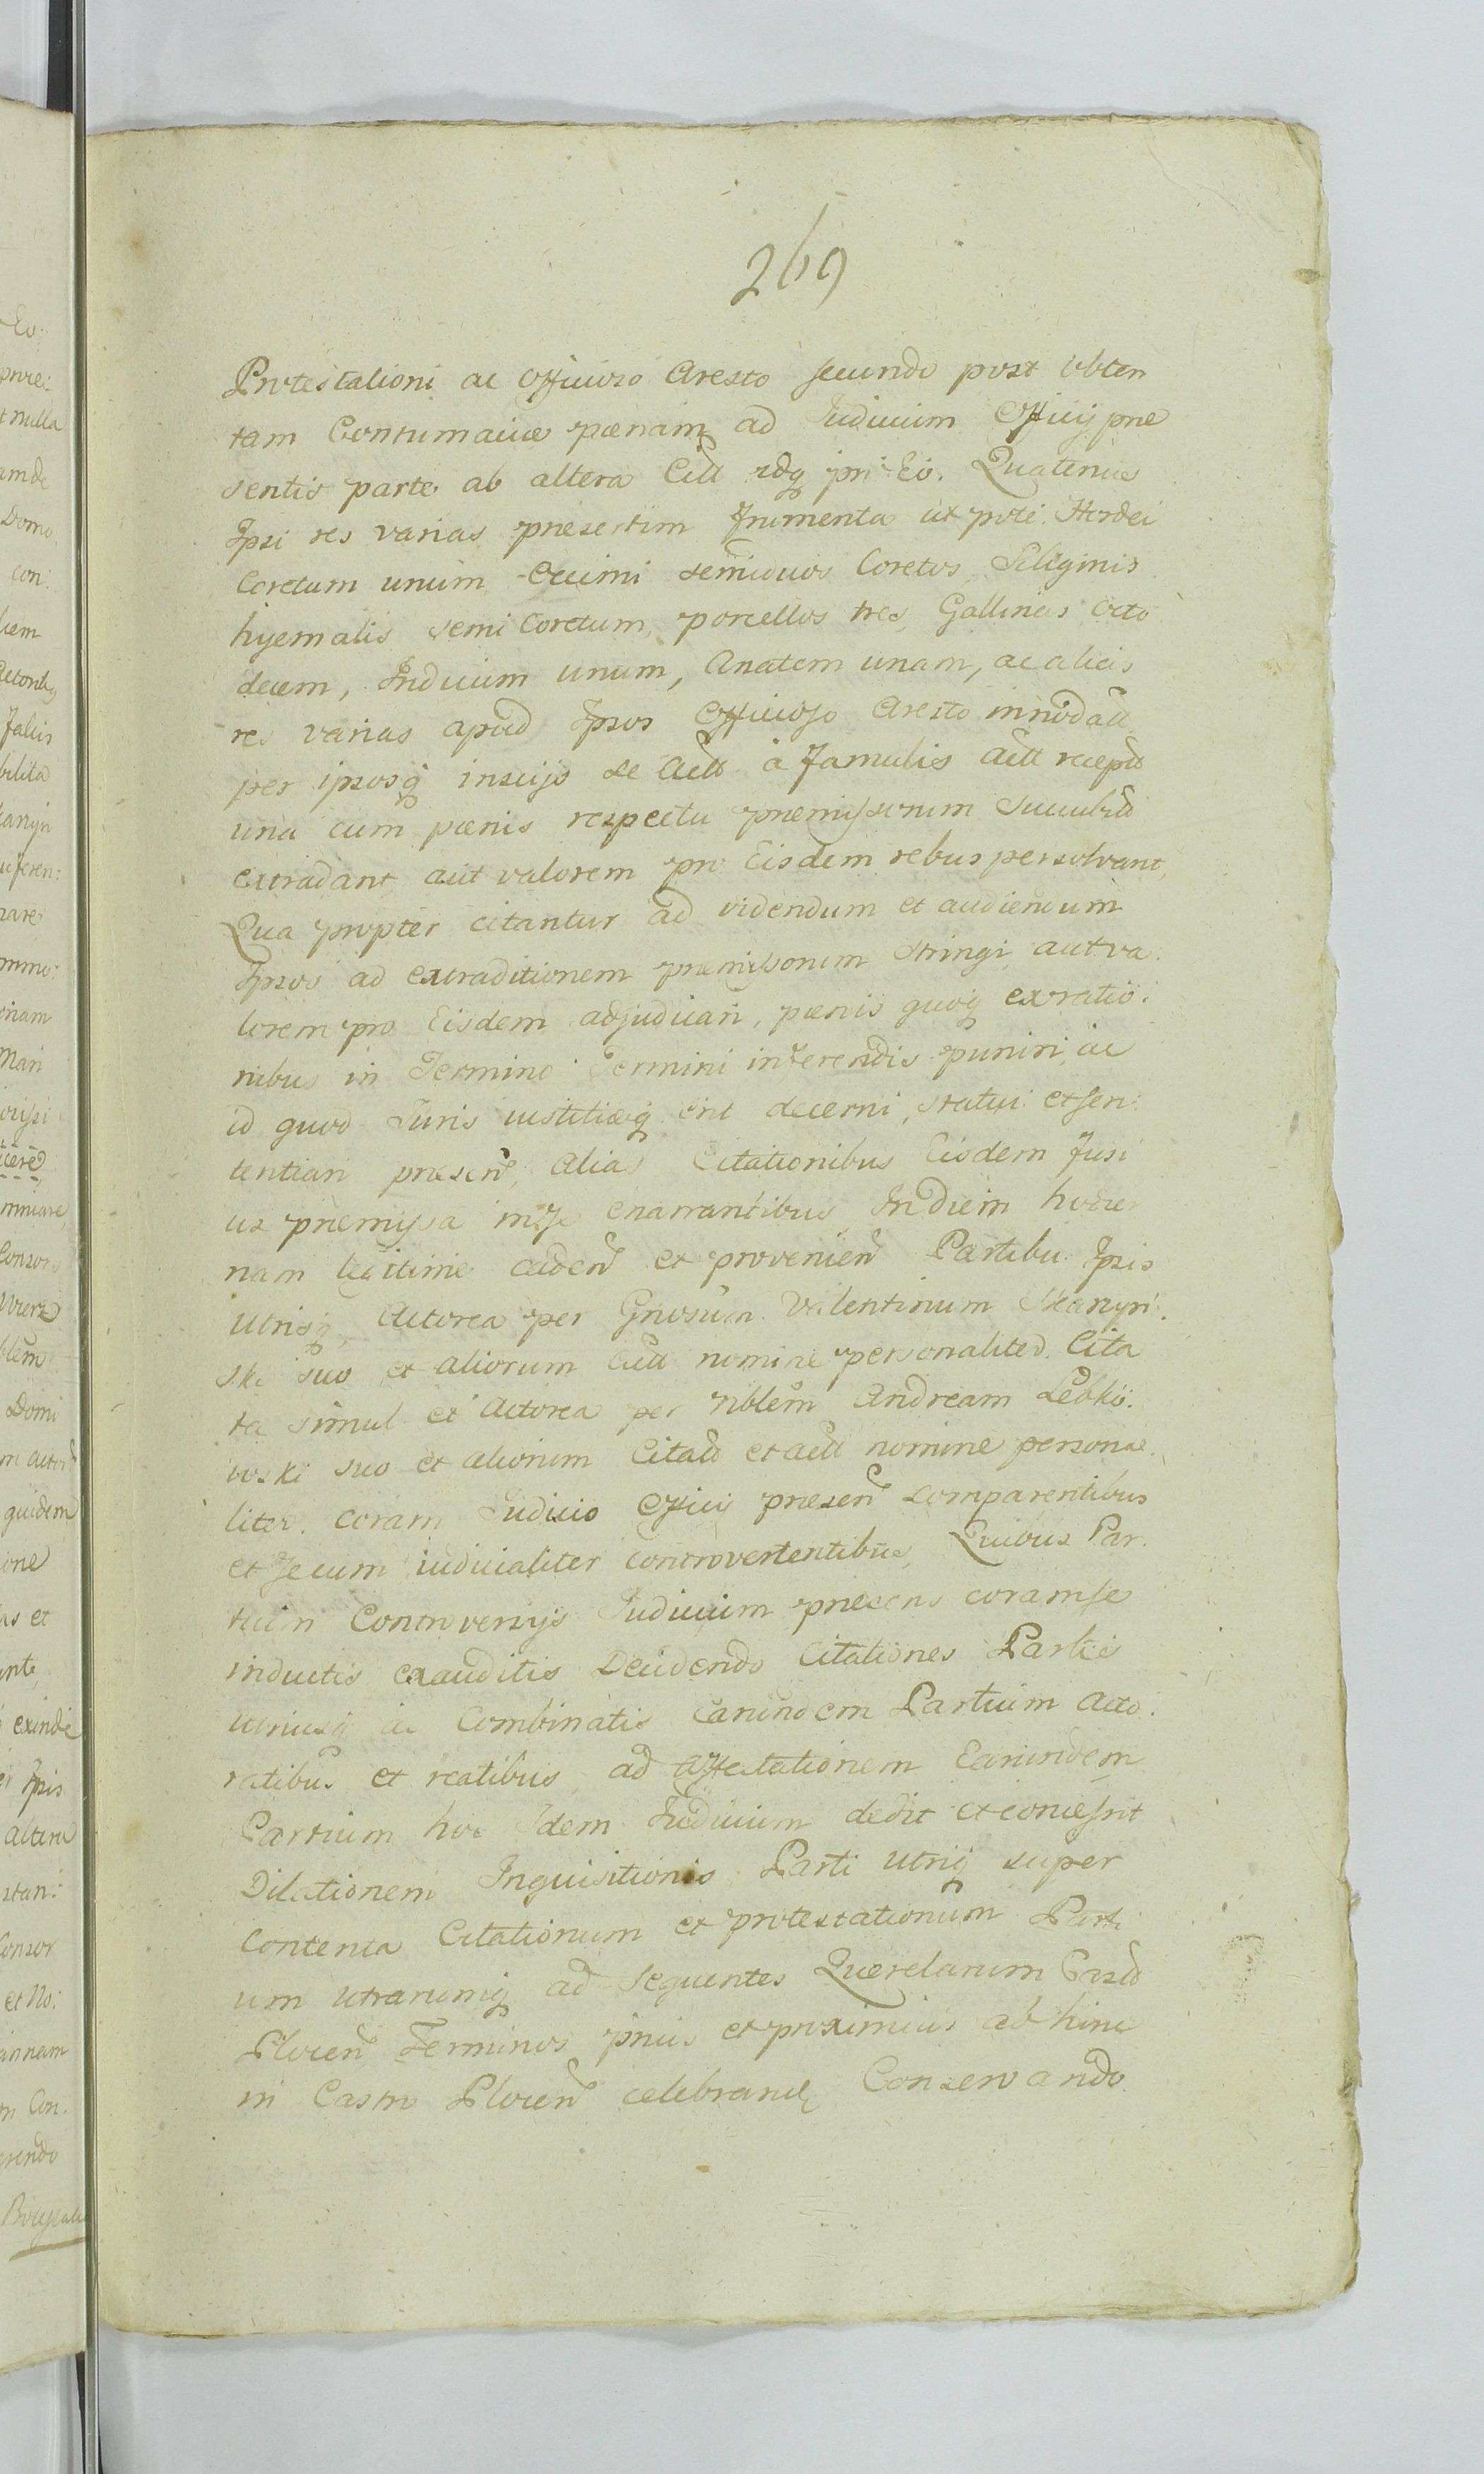 269
Protestationi ac Officioso Aresto secundo post obten
tam Contumaciæ pœnam ad Iudicium Officij præ
sentis parte ab altera Citt idq pri Eo. Quatenus
Ipsi res varias præsertim frumenta ut pote Hordei
Coretum unum Cicimi semiduos Coretos Siliginis
hyemalis semi Coretum, porcellos tres, Gallinas octo
decem, Indicum unum, Anatem unam, ac alias
res varias apud Ipsos Officioso Aresto innodatt
per ipsosq inscijs se Actt à famulis Actt recептt
una cum pœnis respectu præmissorum Succubid
extradant aut valorem pro Eisdem rebus persolvant,
Qua propter citantur ad videndum et audiendum
Ipsos ad extraditionem præmissorum stringi aut va:
lorem pro Eisdem adjudicari, pœnis quoq ex ratio:
nibus in Termino Termini inferendis puniri, ac
id quod Iuris iustitiæq erit decerni, statui et sen:
tentiari præsen, Alias Citationibus Eisdem fusi
us præmissa in se enarrantibus In diem hodier
nam legitime caden et provenien Partibus Ipsis
utrisq Actorea per Gnosum Valentinum Skarzyn:
ski suo et aliorum Actt nomine personaliter. Cita
ta simul et Actorea per nblem Andream Lebko:
wski suo et aliorum Citatt et Actt nomine persona
liter. coram Iudicio Officij præsen comparentibus
et secum iudicialiter controvertentibus, Quibus Par
tium Controversijs Iudicium præsens coram se
inductis exauditis Decidendo Citationes Partis
utriusq ac Combinatis Earundem Partium Acto:
ratibus et reatibus ad affectationem Earundem
Partium hoc Idem Iudicium dedit et concessit
Dilationem Inquisitionis Parti utriq super
Contenta Citationum et protestationum Parti
um utrarumq ad sequentes Querelarum Castr
Plocen Terminos prius et proximius ab hinc
in Castro Plocen celebrand Conservando